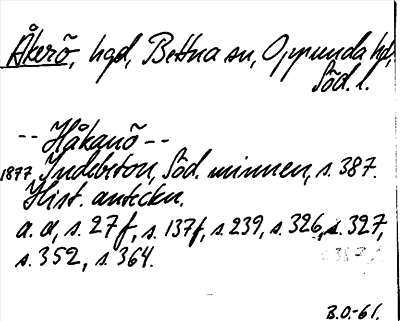 Åkerö, hgd, Bettna sn, Oppunda hd,
Söd. l.
-- Håkanö --
1877, Indebetou, Söd. minnen, s. 387.
Hist. anteckn.
a. a, s. 27f, s. 137f, s. 239, s. 326, s. 327,
s. 352, s. 364.
B.O.-61.